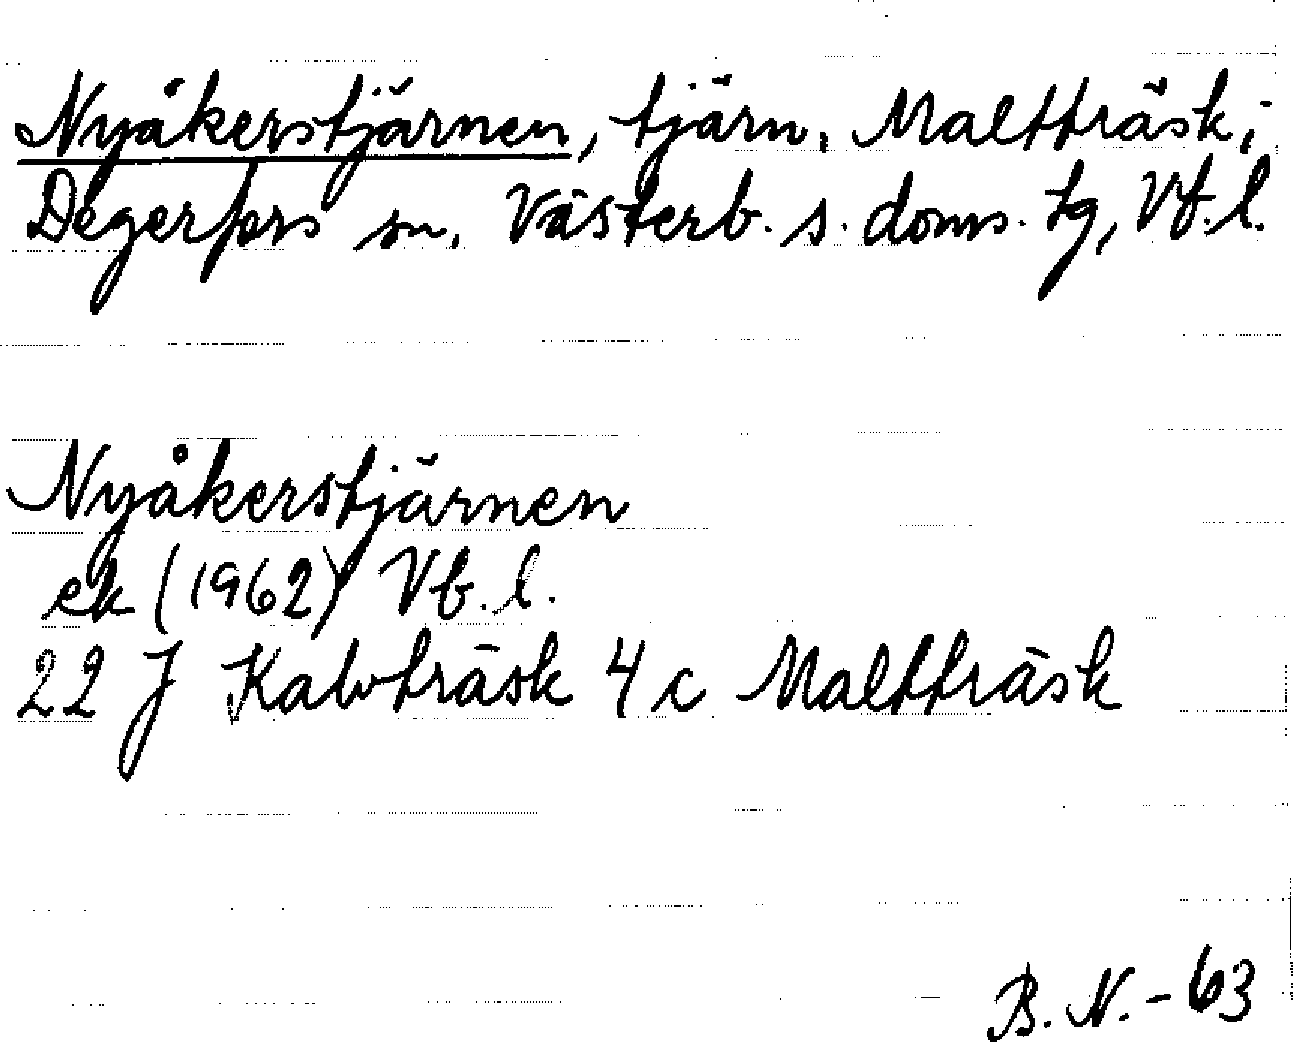 Nyåkerstjärnen, tjärn, Maltträsk,
Degerfors sn, Västerb. s. doms. tg, Vb. l.
Nyåkerstjärnen
ek (1962) Vb. l.
22 J Kalvträsk 4 c Maltträsk
B. N. - 63